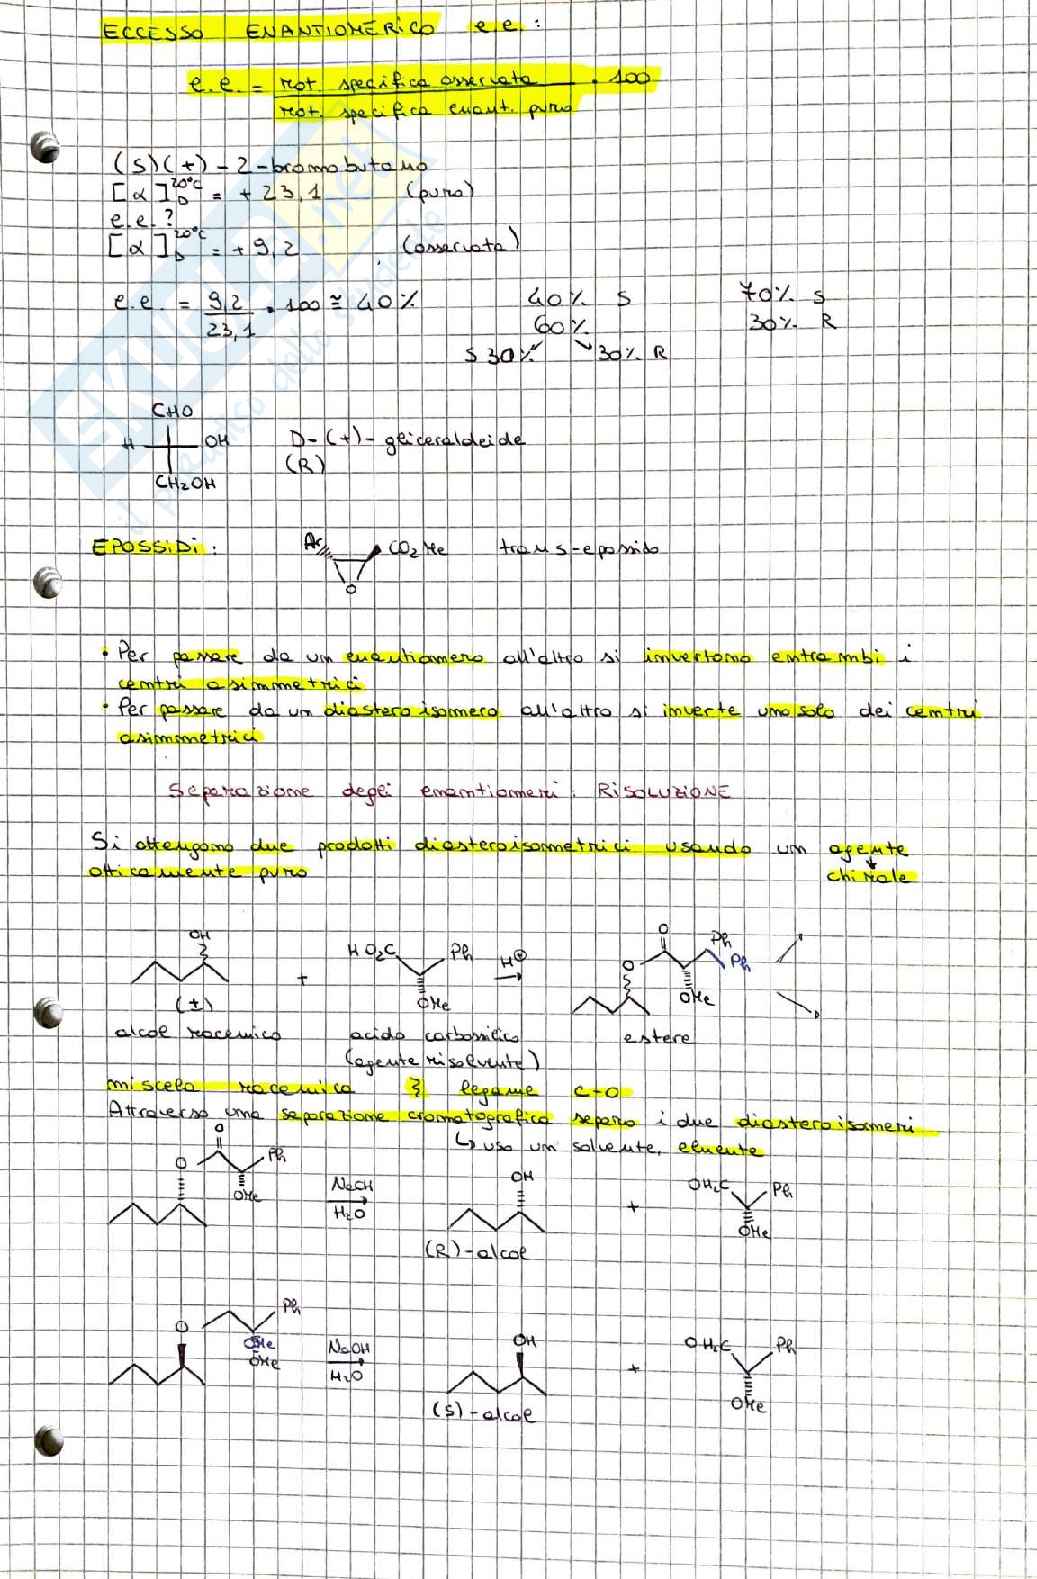 ECCESSO ENANTIOMERICO e.e.:
e.e. = rot. specifica osservata · 100
rot. specifica enant. puro
(S)(+)-2-bromobutano
[α]D20°C = +23,1 (puro)
e.e.?
[α]D20°C = +9,2 (osservata)
e.e. = 9,2 · 100 ≅ 40% 40% S 70% S
23,1 60% 30% R
S 30% 30% R
CHO
H OH D-(+)-gliceraldeide
(R)
CH2OH
EPOSSIDI: Ar CO2Me trans-epossido
O
• Per passare da un enantiomero all'altro si invertono entrambi i
centri asimmetrici
• Per passare da un diasteroisomero all'altro si inverte uno solo dei centri
asimmetrici
Separazione degli enantiomeri: RISOLUZIONE
Si ottengono due prodotti diasteroisometrici usando un agente
otticamente puro chirale
OH HO2C Ph H⊕ O Ph
+ O Ph
(±) OMe OMe
alcol racemico acido carbossilico estere
(agente risolvente)
miscela racemica legame C-O
Attraverso una separazione cromatografica separo i due diasteroisomeri
↳ uso un solvente, eluente
O
O Ph NaOH OH OH2C Ph
OMe H2O + OMe
(R)-alcol
Ph
O OMe NaOH OH OH2C Ph
OMe H2O + OMe
(S)-alcol